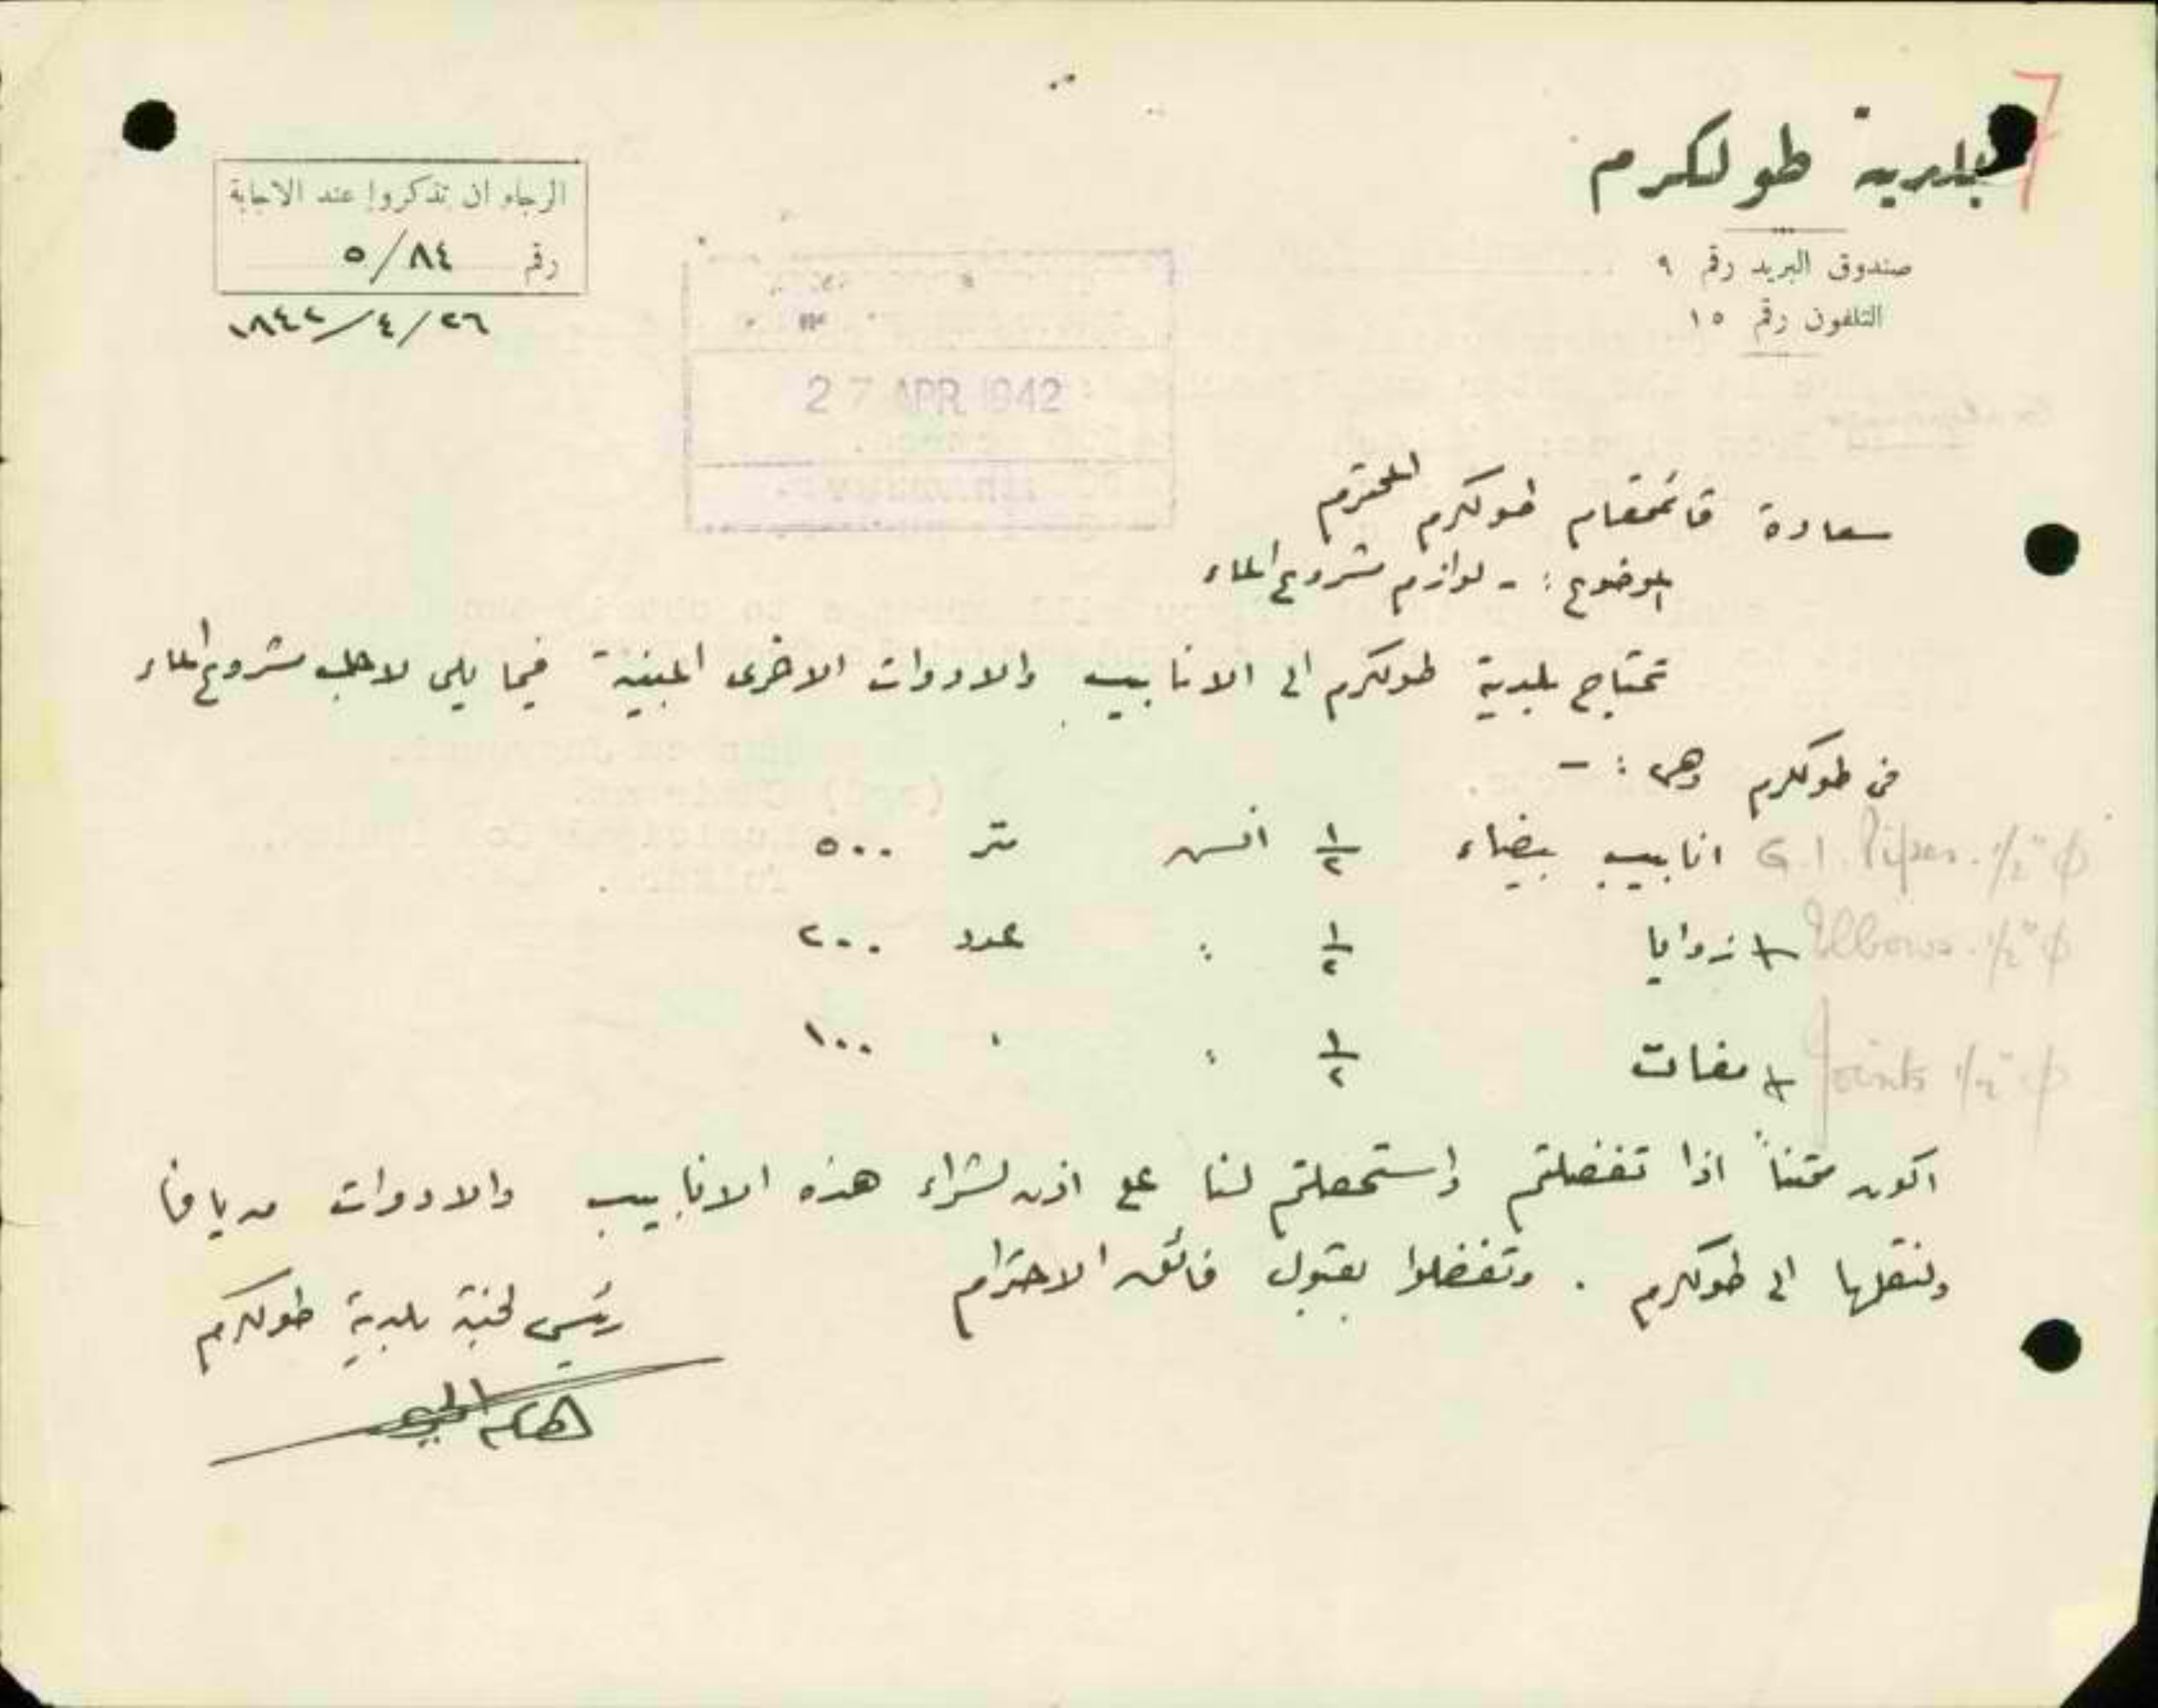 بلدية طولكرم
صندوق البريد رقم ٩
التلفون رقم ١٥
الرجاء ان تذكروا عند الاجابة
رقم ٥/٨٤
٢٦/٤/١٩٤٢
27 APR 1942
سعادة قائمقام طولكرم المحترم
الموضوع :- لوازم مشروع الماء
تحتاج بلدية طولكرم الى الانابيب والادوات الاخرى المبينة فيما يلي لاجل مشروع الماء
في طولكرم وهي :-
G.I. Pipes. 1/2" φ انابيب بيضاء ١/٢ انش متر ٥٠٠
Elbows. 1/2" φ زوايا ١/٢ : عدد ٢٠٠
Joints 1/2" φ مفات ١/٢ : ' ١٠٠
اكون ممتناً اذا تفضلتم واستحصلتم لنا على اذن لشراء هذه الانابيب والادوات من يافا
ولنقلها الى طولكرم . وتفضلوا بقبول فائق الاحترام
رئيس لجنة بلدية طولكرم